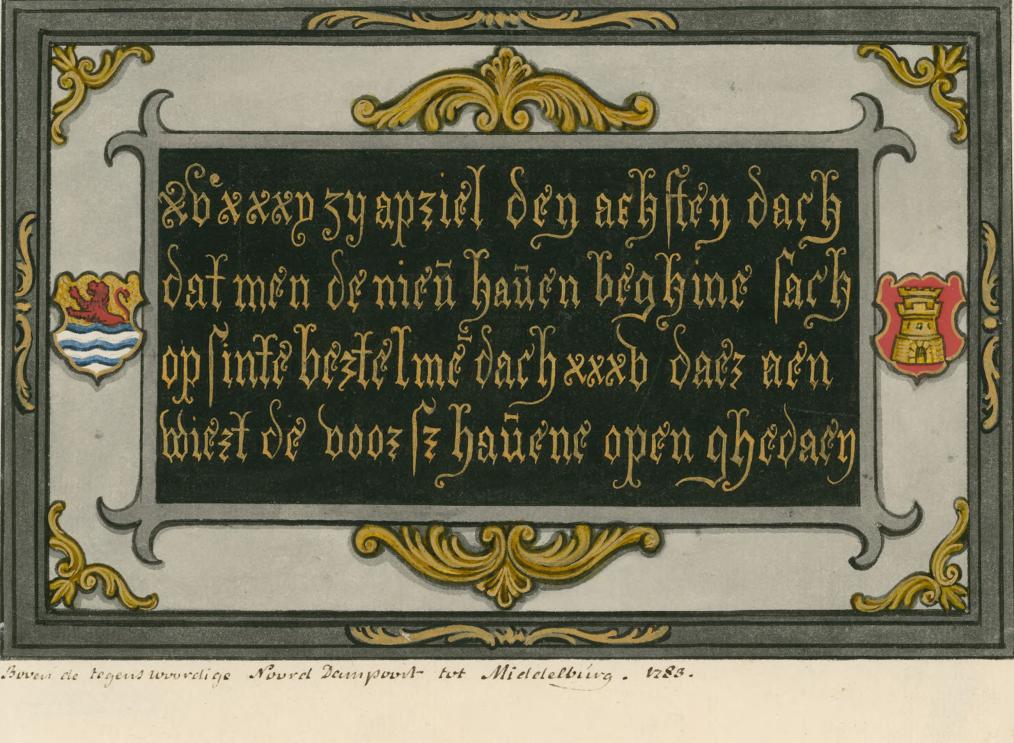 xvᶜ xxxv zy apriel den achsten dach
dat men de nieū haūen beghine sach
op sinte bertelmeˢ dach xxxv daer aen
wiert de voor sz haūene open ghedaen
Boven de tegenswoordige Noord Dampoort tot Middelburg. 1783.